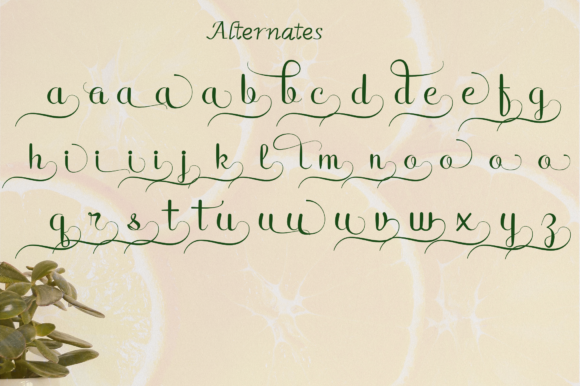 Alternates
a a a a a b b c d d e e f g
h i i i i j k l l m n o o o o
q r s t t u u u u v w x y z